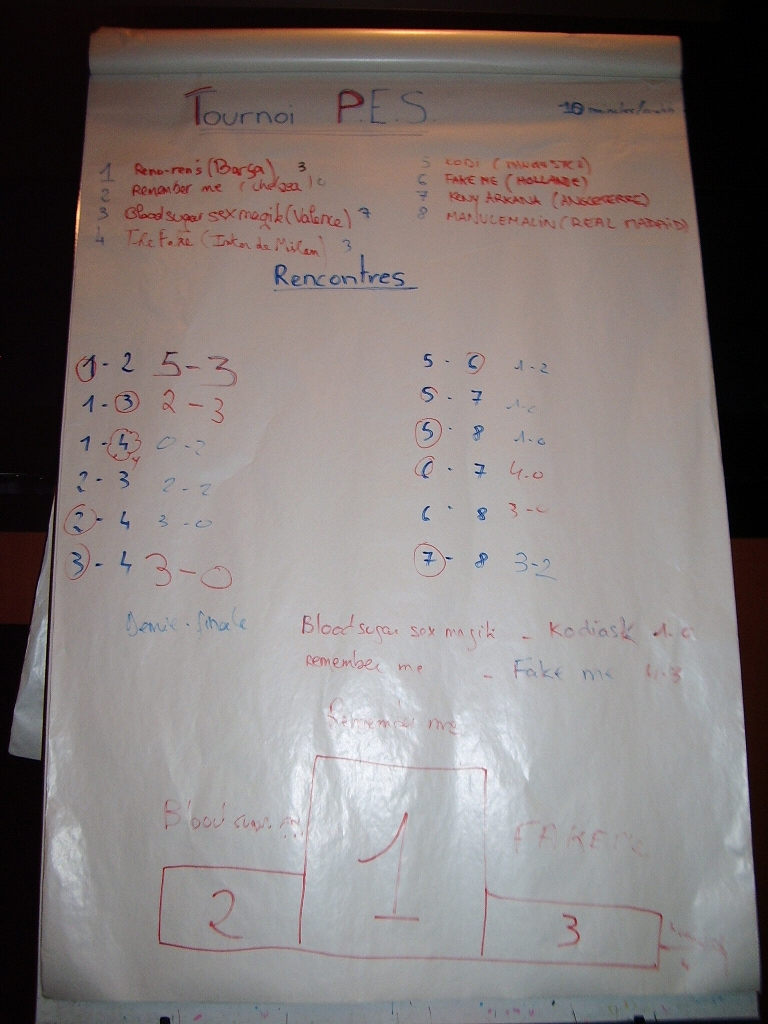 Tournoi P.E.S.
10 minutes/match
1 Reno-ren's (Barça) 3
2 Remember me (chelsea)
3 Blood sugar sex magik (Valence) 7
4 The Fake (Inter de Milan) 3
5 KODI
6 FAKE ME (HOLLANDE)
7 KENY ARKANA (ANGLETERRE)
8 MANULEMALIN (REAL MADRID)
Rencontres
1 - 2 5 - 3
1 - 3 2 - 3
1 - 4 0 - 2
2 - 3 2 - 2
2 - 4 3 - 0
3 - 4 3 - 0
5 - 6 1-2
5 - 7
5 - 8 1-0
6 - 7 4-0
6 - 8
7 - 8 3-2
Demie-finale
Blood sugar sex magik - Kodiask
remember me - Fake me 4-3
Remember me
Blood sugar
FAKE
1
2
3